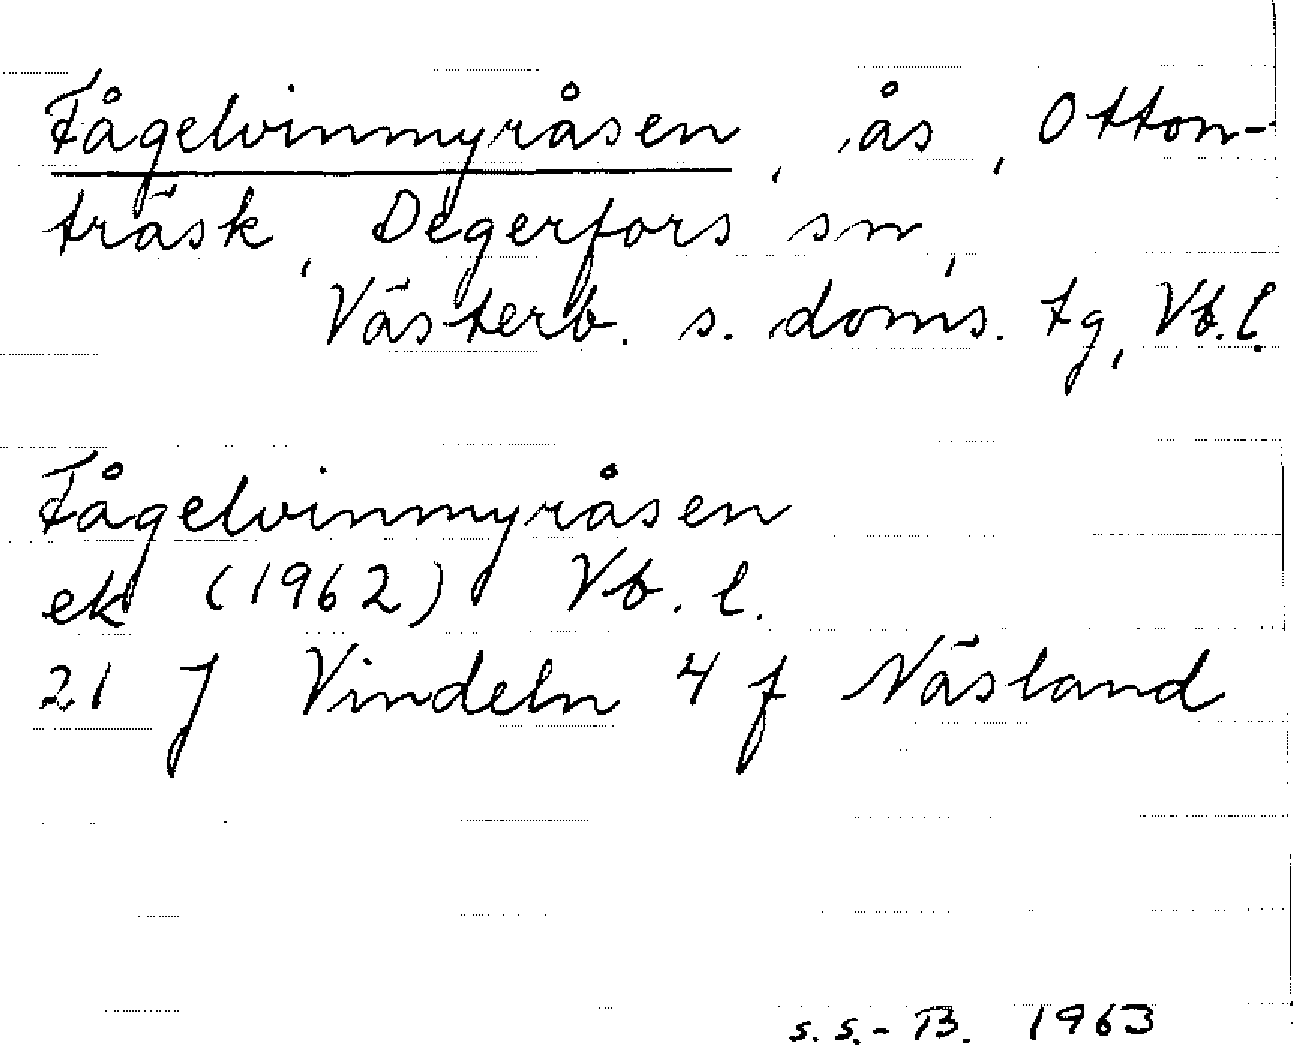 Fågelvinmyråsen, ås, Otton-
träsk, Degerfors sn,
Västerb. s. doms. tg, Vb. l.
Fågelvinmyråsen
ek (1962) Vb. l.
21 J Vindeln 4 f Näsland
s. s.- B. 1963